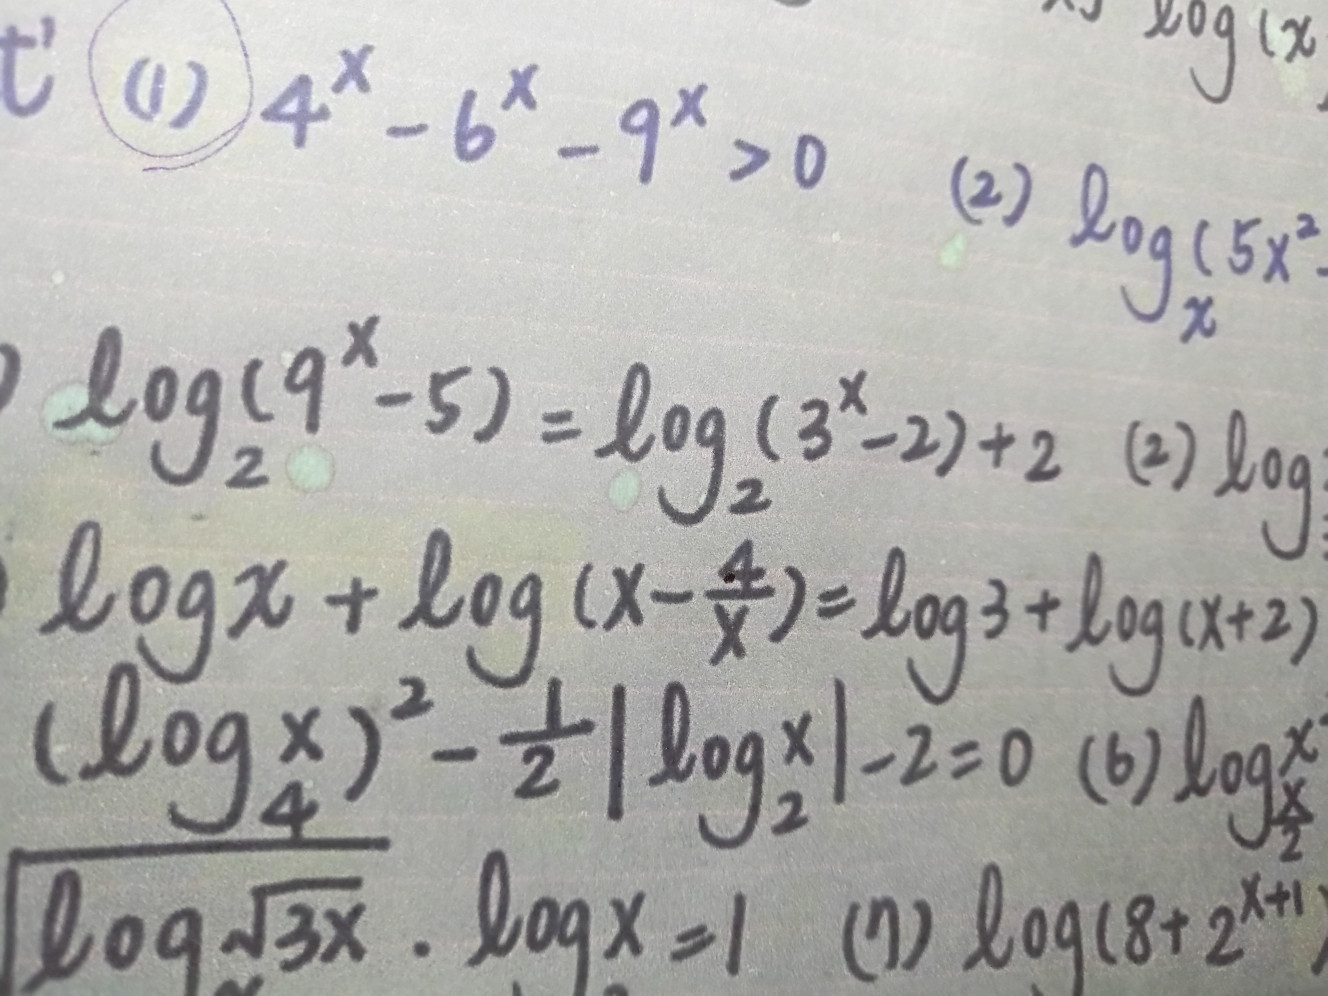 log(x
t' (1) 4^x - 6^x - 9^x > 0 (2) log_x(5x^2-
) log_2(9^x-5) = log_2(3^x-2)+2 (2) log
) log x + log(x-4/x) = log 3 + log(x+2)
(log_4 x)^2 - 1/2|log_2 x| - 2 = 0 (6) log_{x/2} x
√log √3x · log x = 1 (7) log(8+2^{x+1})